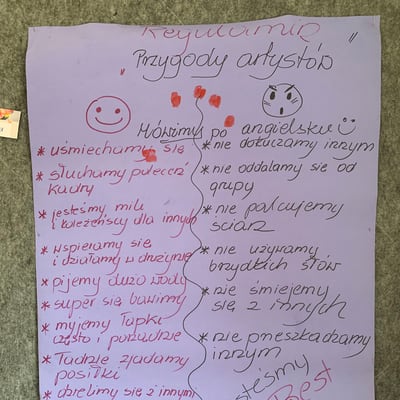 Regulamin
"Przygody artystów"
Mówimy po angielsku
* uśmiechamy się
* słuchamy poleceń
kadry
* jesteśmy mili
i koleżeńscy dla innych
* wspieramy się
i działamy w drużynie
* pijemy dużo wody
* super się bawimy
* myjemy łapki
często i porządnie
* ładnie zjadamy
posiłki
* dzielimy się z innymi
* nie dokuczamy innym
* nie oddalamy się od
grupy
* nie palcujemy
ścian
* nie używamy
brzydkich słów
* nie śmiejemy
się z innych
* nie przeszkadzamy
innym
jesteśmy
Best